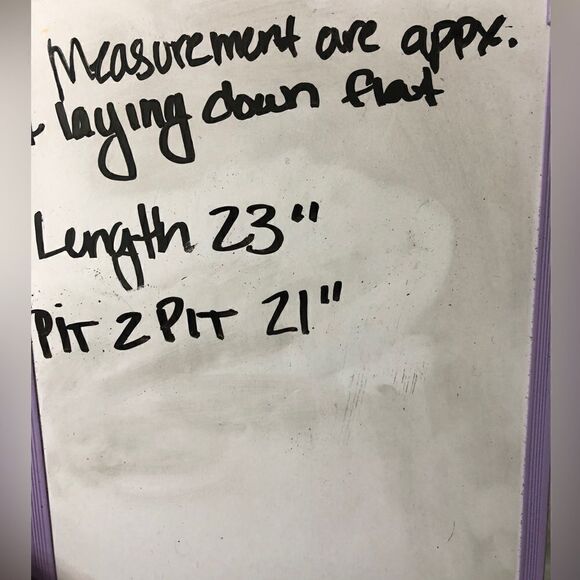 Measurement are appx.
+ laying down flat
Length 23"
PIT 2 PIT 21"